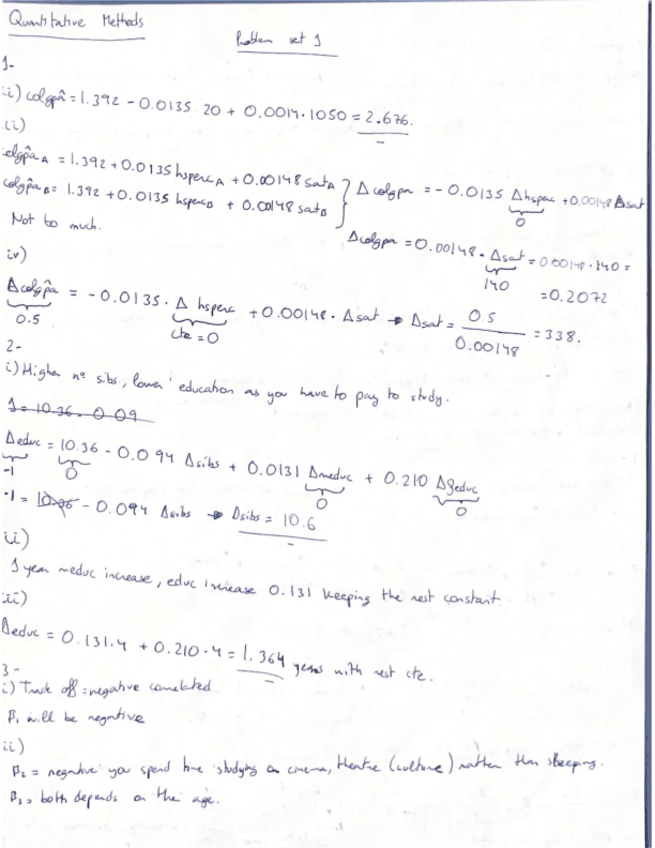 Quantitative Methods
Problem set 1
1-
i) colgpâ = 1.392 - 0.0135 20 + 0.0014·1050 = 2.676.
ii)
colgpâ A = 1.392 + 0.0135 hsperc A + 0.00148 sat A
colgpâ B = 1.392 + 0.0135 hsperc B + 0.00148 sat B
Δcolgpa = -0.0135 Δhsperc + 0.00148 Δsat
0
Not to much.
Δcolgpa = 0.00148 · Δsat = 0.00148 · 140 =
140
= 0.2072
iv)
Δcolgpâ = -0.0135 · Δ hsperc + 0.00148 · Δsat → Δsat = 0.5 / 0.00148 = 338.
0.5 cte = 0
2-
i) Higher nº sibs., lower education as you have to pay to study.
1 = 10.36 - 0.09
Δeduc = 10.36 - 0.094 Δsibs + 0.0131 Δmeduc + 0.210 Δfeduc
-1 0 0 0
-1 = 10.36 - 0.094 Δsibs → Δsibs = 10.6
ii)
1 year meduc increase, educ increase 0.131 keeping the rest constant.
iii)
Δeduc = 0.131·4 + 0.210·4 = 1.364 years with rest cte.
3-
i) Trade off = negative correlated
β₁ will be negative
ii)
β₂ = negative you spend time studying or cinema, theatre (culture) rather than sleeping.
β₃ = both depends on the age.